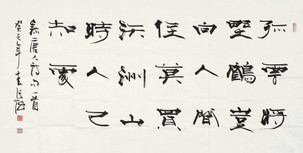 孤雲將
野鶴豈
向人間
住莫買
沃洲山
時人已
知處
唐人詩句一首